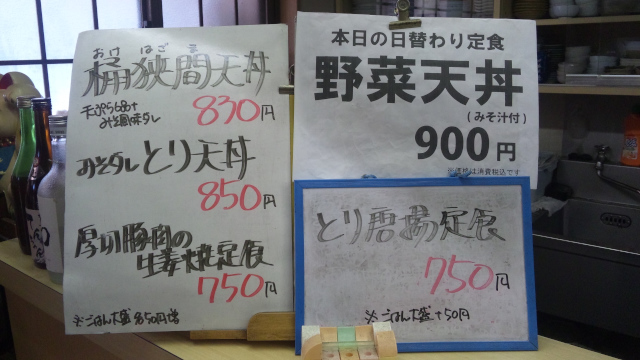 おけはざま
桶狭間天丼
みそ風味ダレ
830円
みそダレとり天丼
850円
厚切豚肉の
生姜焼定食
750円
※ごはん大盛各50円増
本日の日替わり定食
野菜天丼
(みそ汁付)
900円
※価格は消費税込です
とり唐揚定食
750円
※ごはん大盛+50円